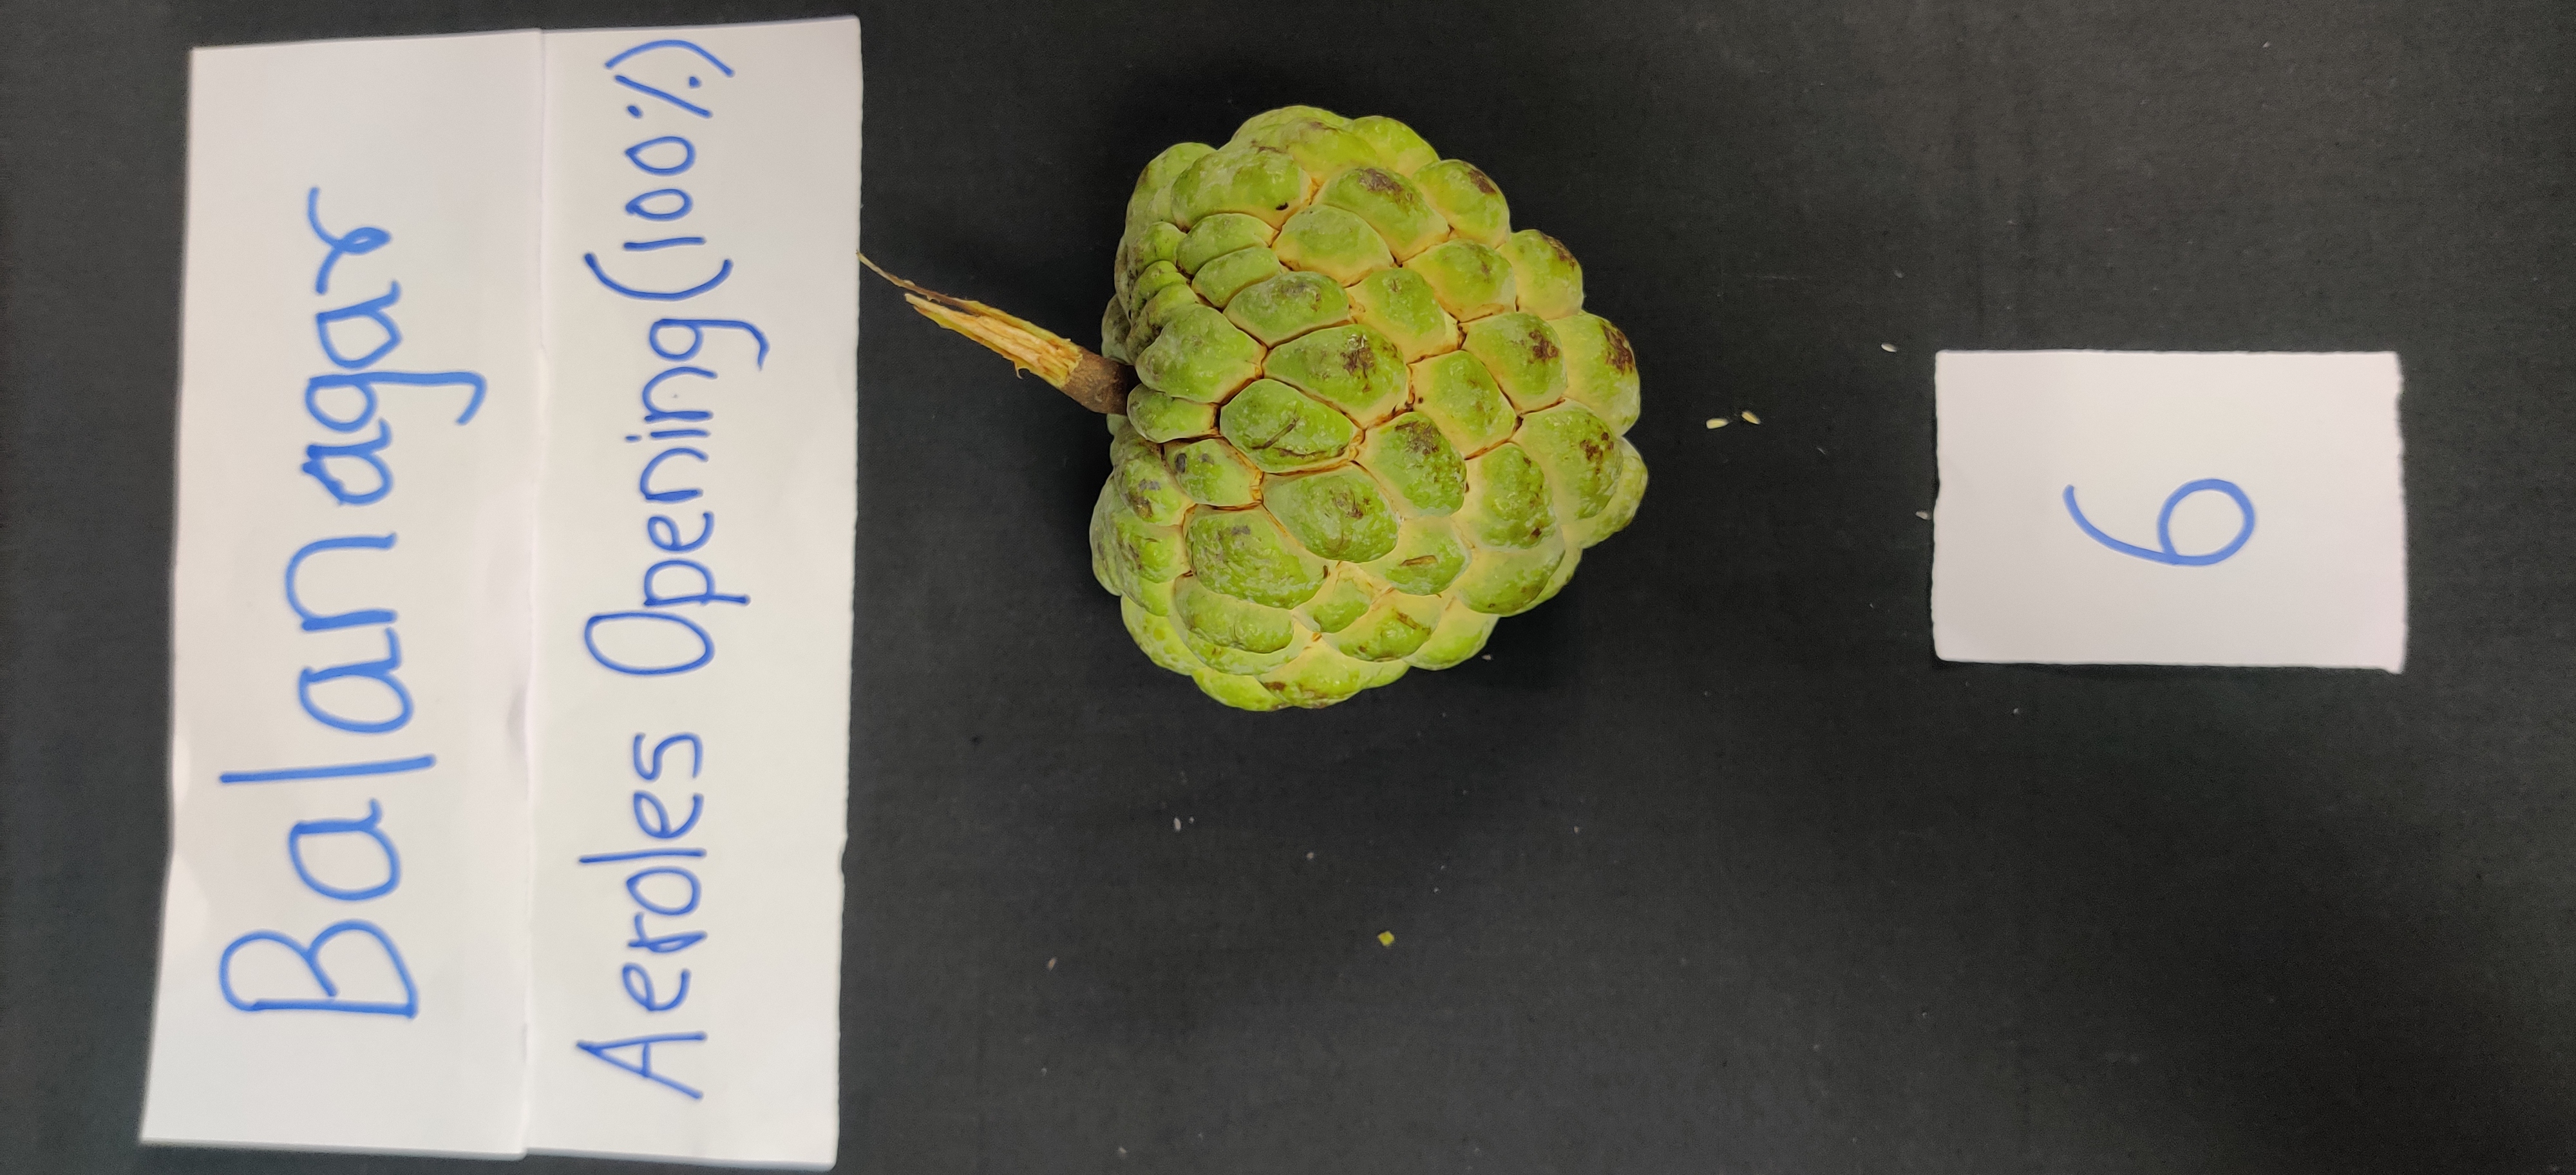 Balanagar
Aeroles Opening(100%)
6